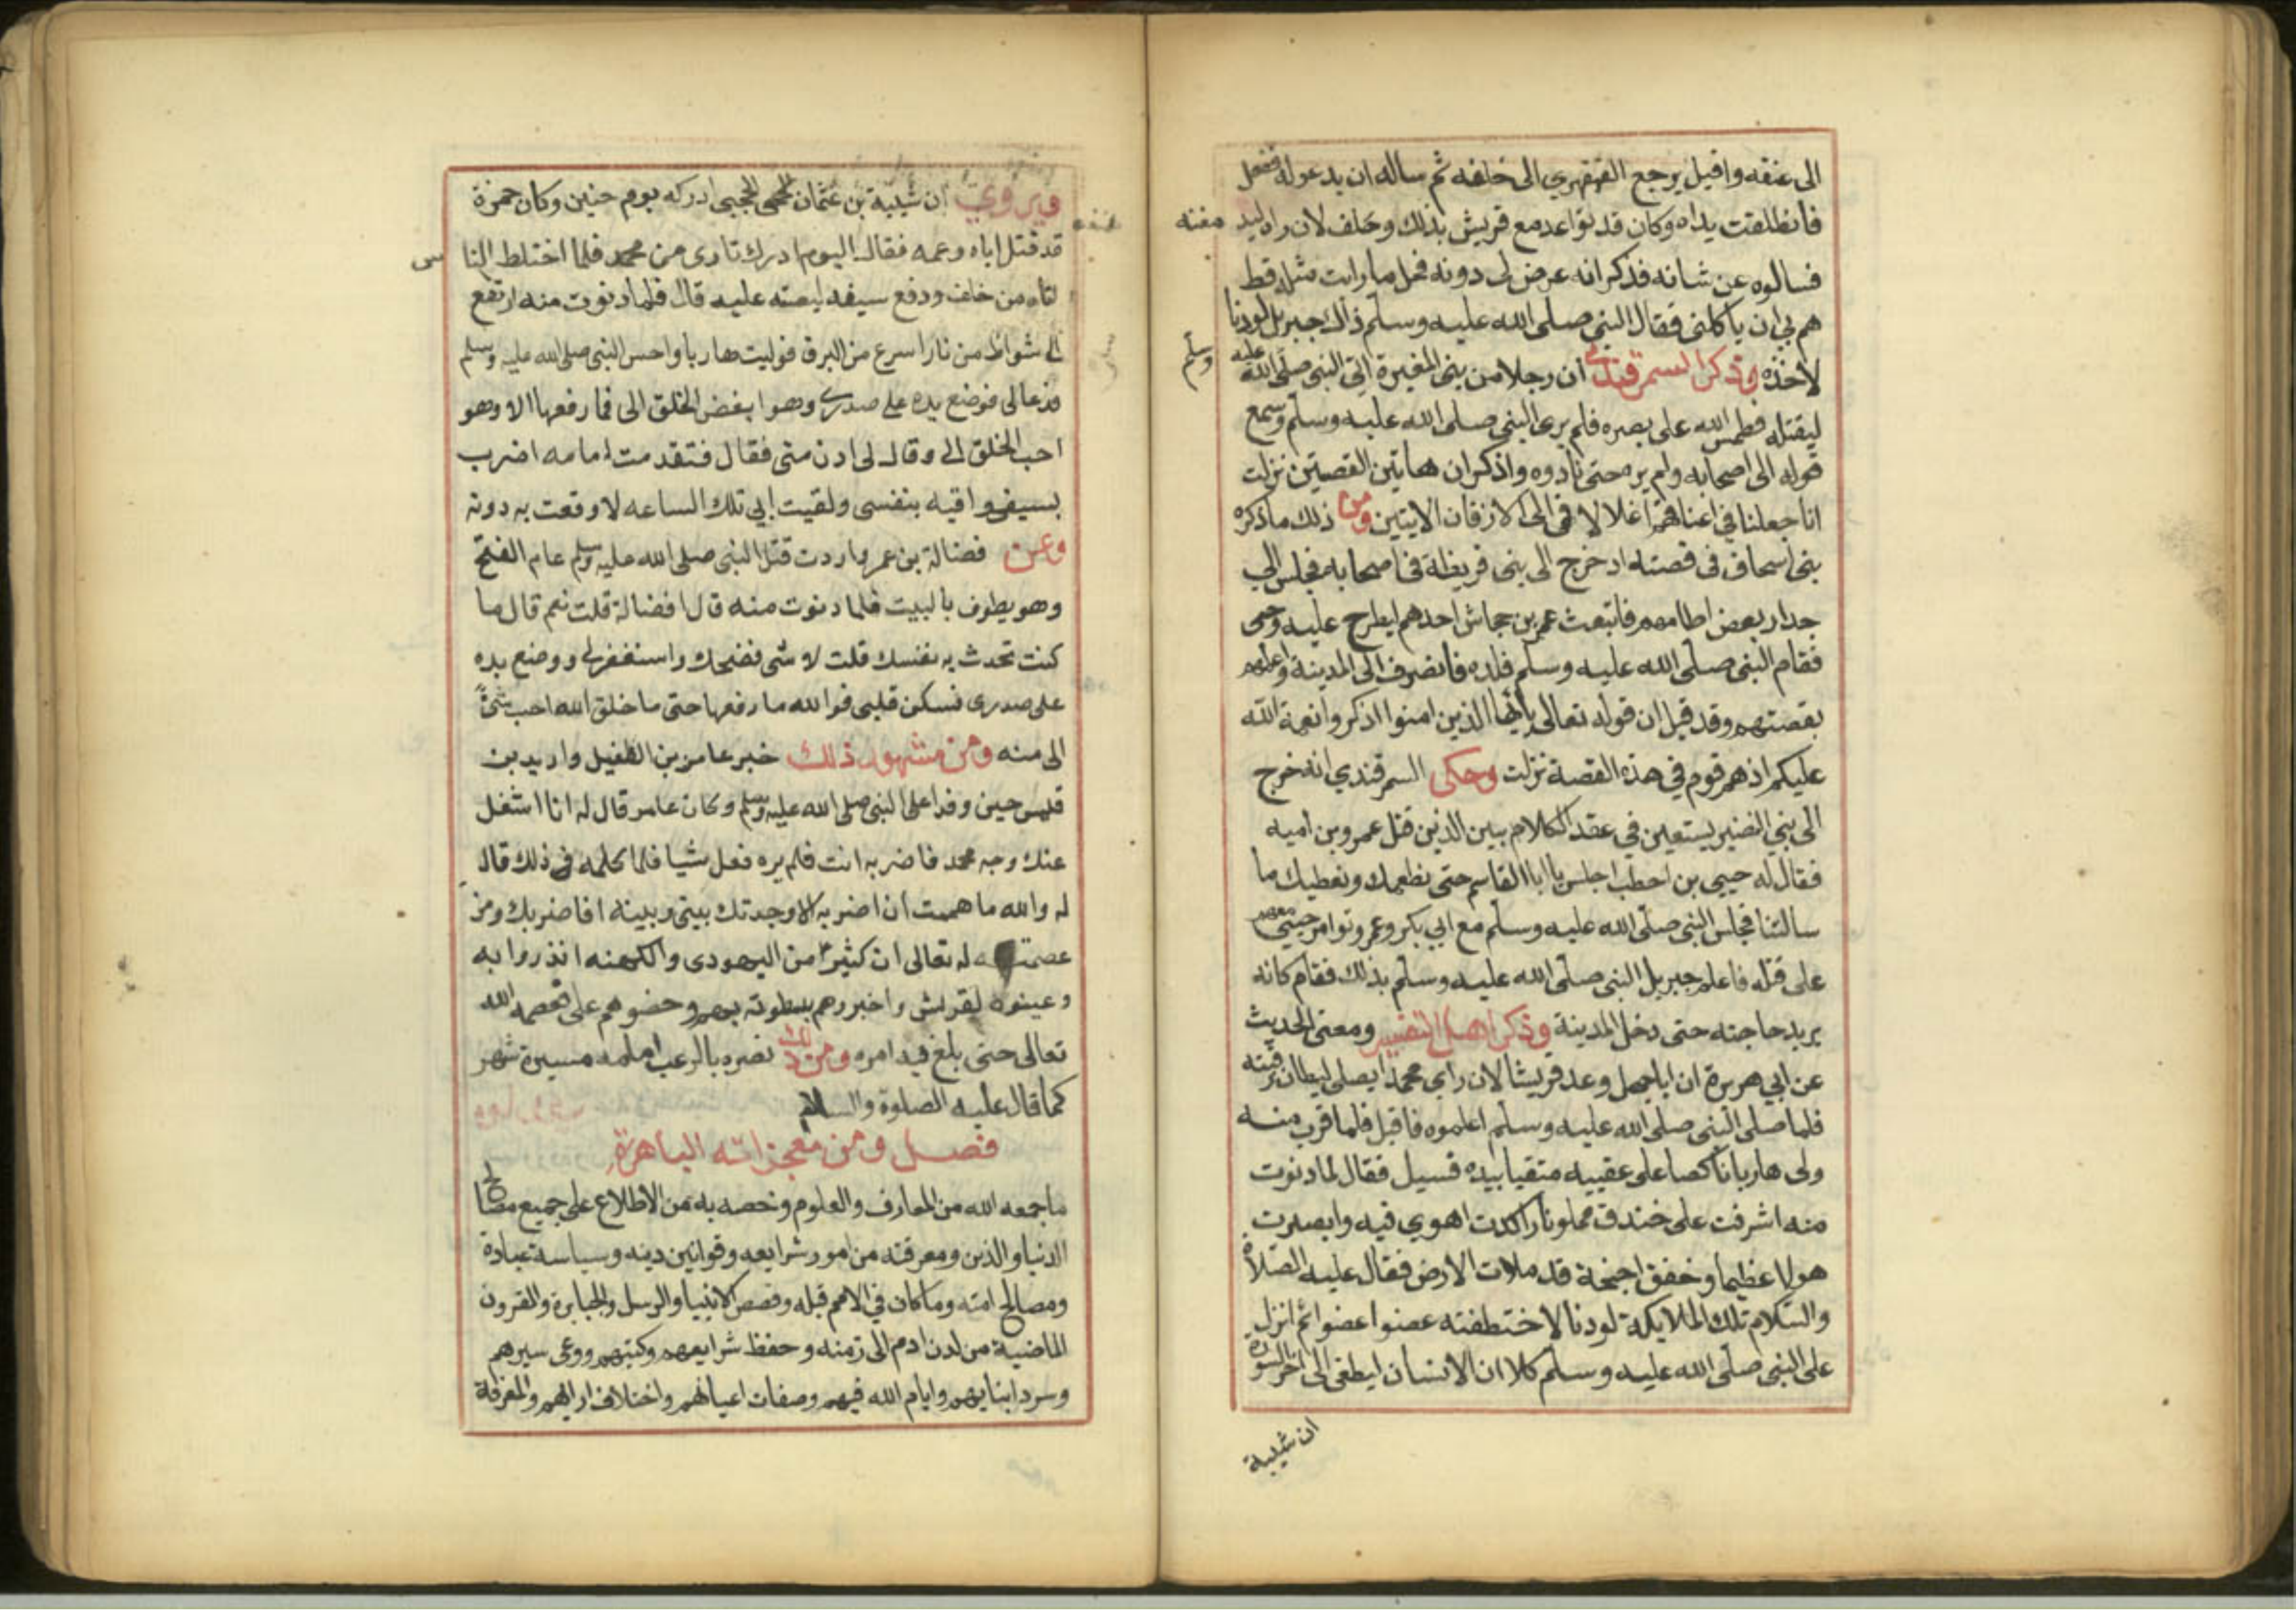 الى عنقه واقبل يرجع القهقري الى خلفه ثم ساله ان يدعوله ففعل
فانطلقت يداه وكان قد تواعد مع قريش بذلك وحلف لان راه ليد مغنه
فسالوه عن شانه فذكر انه عرض لى دونه فحل ما رايت مثله قط
هم بي ان ياكلنى فقال النبى صلى الله عليه وسلم ذاك جبريل لودنا
لاخذه وذكر السمرقندي ان رجلا من بنى المغيرة اتى النبى صلى الله عليه وسلم
ليقتله فطمس الله على بصره فلم يرى النبى صلى الله عليه وسلم وسمع
قوله الى اصحابه ولم يرهم حتى نادوه واذكر ان هاتين القصتين نزلت
انا جعلنا في اعناقهم اغلالا لا فى الى الاذقان الايتين ومن ذلك ما ذكره
بنى اسحاق فى قصته اذ خرج الى بنى قريظة فى اصحابه فجلس الي
جدار بعض اطامهم فاتبعث عمر بن جحاش احدهم ليطرح عليه وحى
فقام النبى صلى الله عليه وسلم فلده فانصرف الى المدينة واعلمهم
بقصتهم وقد قيل ان قوله تعالى يأيها الذين امنوا اذكروا نعمة الله
عليكم اذ هم قوم في هذه القصة نزلت وحكى السمرقندي انه خرج
الى بني النضير يستعين في عقد الكلام بين الذين قتل عمرو بن اميه
فقال له حيي بن احطب اجلس يا ابا القاسم حتى نطعمك ونعطيك ما
سالتنا فجلس النبى صلى الله عليه وسلم مع ابي بكر وعمر وتوامر حيى معهم
على قتله فاعلم جبريل النبى صلى الله عليه وسلم بذلك فقام كانه
يريد حاجته حتى دخل المدينة وذكر اهل التفسير ومعنى الحديث
عن ابي هريرة ان اباجهل وعد قريشا لان راى محمدا يصلى ليطان رقبته
فلما صلى النبى صلى الله عليه وسلم اعلموه فاقبل فلما قرب منه
ولى هاربا ناكصا على عقبيه متقيا بيده فسيل فقال لما دنوت
منه اشرفت على خندق مملو نارا كدت اهوي فيه وابصرت
هولا عظيما وخفق اجنحة قد ملات الارض فقال عليه الصلاة
والسلام تلك الملايكة لودنا لاختطفته عضوا عضوا ثم انزل
على النبى صلى الله عليه وسلم كلا ان الانسان ليطغى الى اخر السورة
ان شيبة
ويروي ان شيبة بن عثمان الحجبى ادركه يوم حنين وكان حمزة
قد قتل اباه وعمه فقال اليوم ادرك ثارى من محمد فلما اختلط النا س
اتاه من خلف ودفع سيفه ليصبه عليه قال فلما دنوت منه ارتفع
الى شواظ من نار اسرع من البرق فوليت هاربا واحس النبى صلى الله عليه وسلم
فدعانى فوضع يده على صدرى وهو ابغض الخلق الى فما رفعها الا وهو
احب الخلق الى وقال لى ادن منى فقال فتقدمت امامه اضرب
بسيفى واقيه بنفسى ولقيت ابي تلك الساعه لاوقعت به دونه
وعن فضالة بن عمر واردت قتل النبى صلى الله عليه وسلم عام الفتح
وهو يطوف بالبيت فلما دنوت منه قال افضالة قلت نعم قال ما
كنت تحدث به نفسك قلت لا شى فضحك واستغفر لى ووضع يده
على صدرى فسكن قلبى فوالله ما رفعها حتى ما خلق الله احب شئ
الى منه ومن مشهور ذلك خبر عامر بن الطفيل واربد بن
قيس حين وفدا على النبى صلى الله عليه وسلم وكان عامر قال له انا اشغل
عنك وجه محمد فاضربه انت فلم يره فعل شيا فلما كلمه فى ذلك قال
له والله ما هممت ان اضربه الا وجدتك بينى وبينه افاضربك ومن
عصمته له تعالى ان كثيرا من اليهودى والكهنه انذروا به
وعينوه لقريش واخبروهم بسطوته بهم وحضوهم على فعصمه الله
تعالى حتى بلغ فيه امره ومن ذلك نصره بالرعب امامه مسيرة شهر
كما قال عليه الصلوة والسلام
فصل ومن معجزاته الباهرة
ما جمعه الله من المعارف والعلوم وخصه به من الاطلاع على جميع مصالح
الدنيا والدين ومعرفته من امور شرايعه وقوانين دينه وسياسة عبادة
ومصالح امته وما كان في الامم قبله وقصص الانبيا والرسل والجبابرة والقرون
الماضية من لدن ادم الى زمنه وحفظ شرايعهم وكتبهم ووعى سيرهم
وسرد انبايهم وايام الله فيهم وصفات اعيانهم واختلاف ارايهم والمعرفة